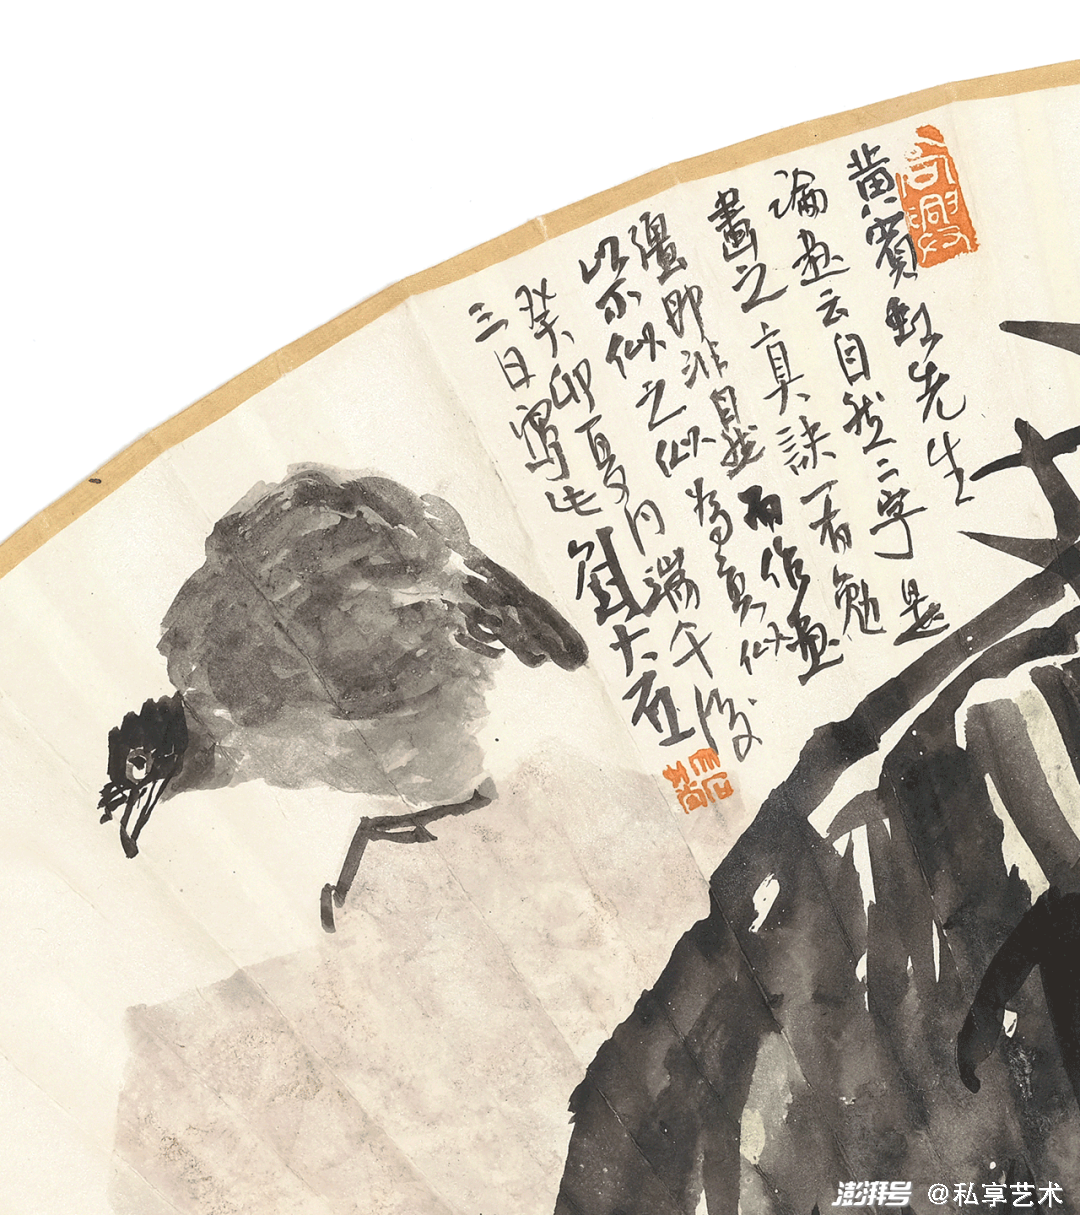 黄賓虹先生
論畫云自然二字是
畫之真訣一有勉
彊即非自然而作畫
以不似之似為真似
癸卯夏月端午後
三日寫大石
澎湃号 @私享艺术